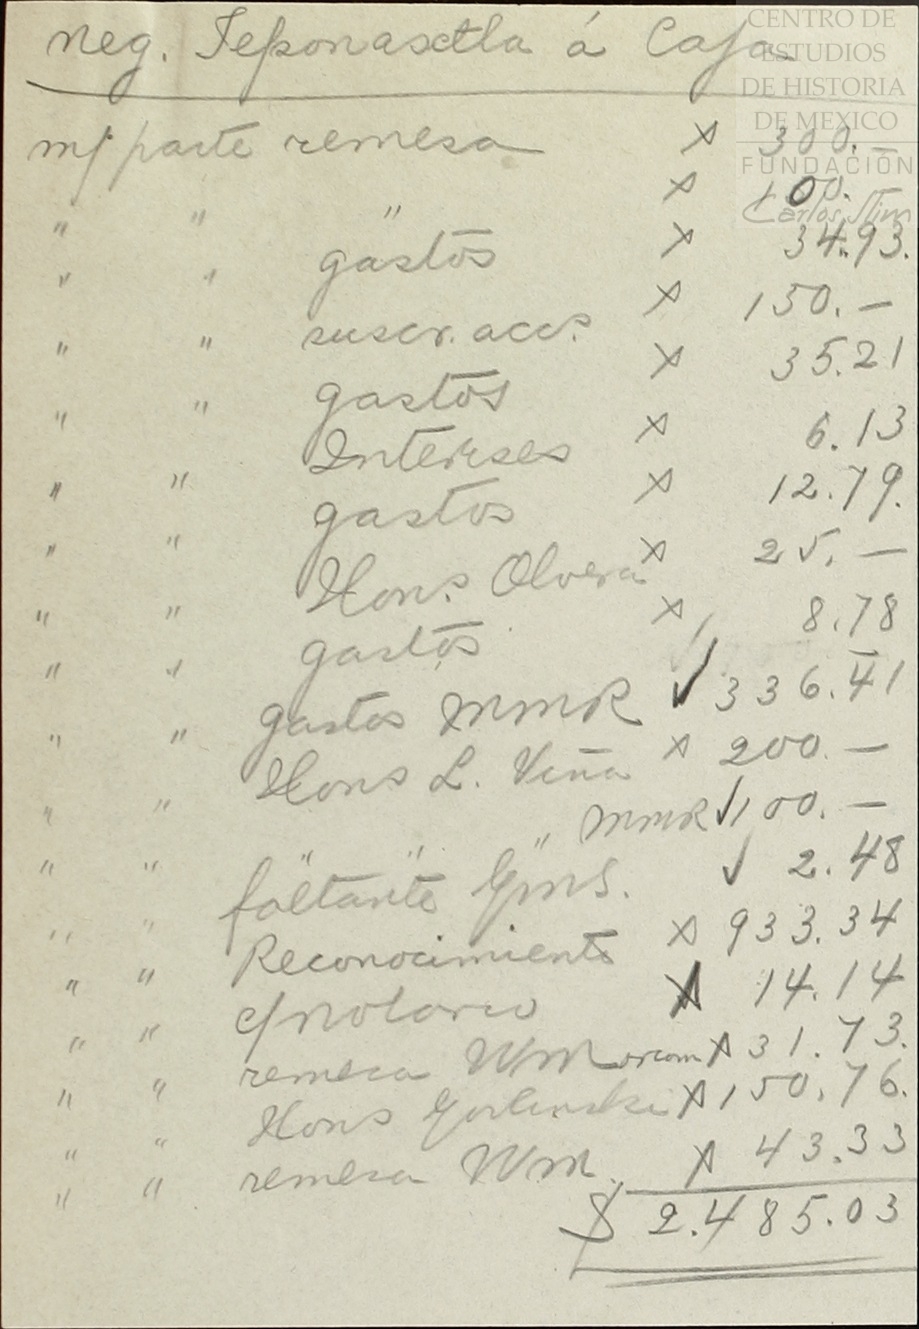 neg. Teponaxtla á Caja
CENTRO DE
ESTUDIOS
DE HISTORIA
DE MEXICO
FUNDACIÓN
Carlos Slim
m/ parte remesa × 300.—
" " " × 100.
" " gastos × 34.93.
" " suscr. accs. × 150.—
" " gastos × 35.21
" " Intereses × 6.13
" " gastos × 12.79.
" " Hons. Olvera × 25.—
" " gastos × 8.78
" " gastos MMR ✓ 336.41
" " Hons L. Viña × 200.—
" " " " " MMR ✓ 100.—
" " faltante ✓ 2.48
" " Reconocimiento × 933.34
" " c/ Notario × 14.14
" " remesa WM × 31.73.
" " Hons × 150.76.
" " remesa WM. × 43.33
$ 2.485.03